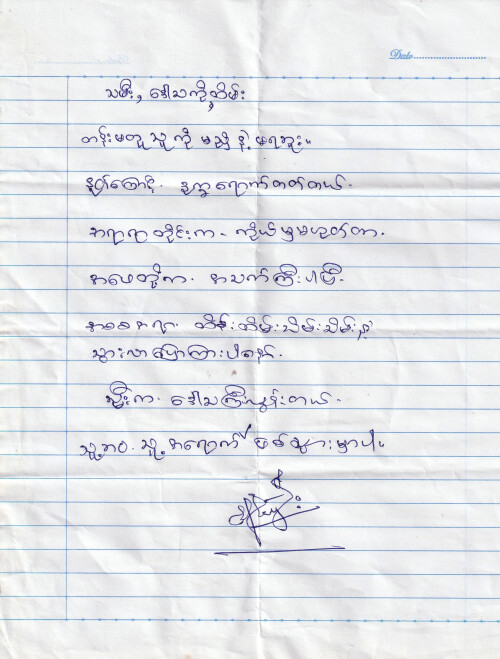 Date
သမီး, ဒေါသကိုထိမ်း
တန်းမတူသူကို မညှိနဲ့ မရဘူး။
နှုတ်ကြောင့် ဒုက္ခရောက်တတ်တယ်.
အရာရာတိုင်းက - ကိုယ်မှမဟုတ်တာ.
အမေတို့က. အသက်ကြီးပါပြီ.
အစစအရာ. ထိန်းထိမ်းသိမ်းသိမ်းနဲ့
သွားလာပြောကြားပါနော်.
သမီးက ဒေါသကြီးလွန်းတယ်.
သူ့ဘဝ. သူ့အရောက် ဖြစ်သွားမှာပါ.